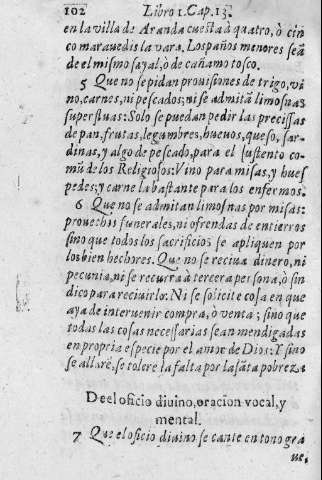 102 Libro 1. Cap. 13.
en la villa de Aranda cuesta à quatro, ò cin
co marauedis la vara. Los paños menores seã
de el mismo sayal, ò de cañamo tosco.
5 Que no se pidan prouisiones de trigo, vi
no, carnes, ni pescados; ni se admitã limosnas
superfluas: Solo se puedan pedir las precissas
de pan, frutas, legambres, hueuos, queso, sar-
dinas, y algo de pescado, para el sustento co-
mũ de los Religiosos: Vino para misas, y hues
pedes; y carne la bastante para los enfermos.
6 Que no se admitan limosnas por misas:
prouechos funerales, ni ofrendas de entierros
sino que todos los sacrificios se apliquen por
los bien hechores. Que no se reciua dinero, ni
pecunia, ni se recurra à tercera persona, ò sin
dico para reciuirlo: Ni se solicite cosa en que
aya de interuenir compra, ò venta; sino que
todas las cosas necessarias sean mendigadas
en propria especie por el amor de Dios: Y sino
se allarẽ, se tolere la falta por la sãta pobreza
De el oficio diuino, oracion vocal, y
mental.
7 Que el oficio diuino se cante en tono gra
ue,